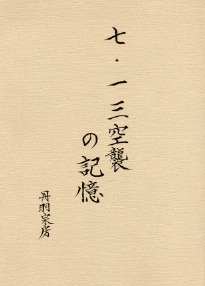 七・一三空襲
の記憶
丹羽家房